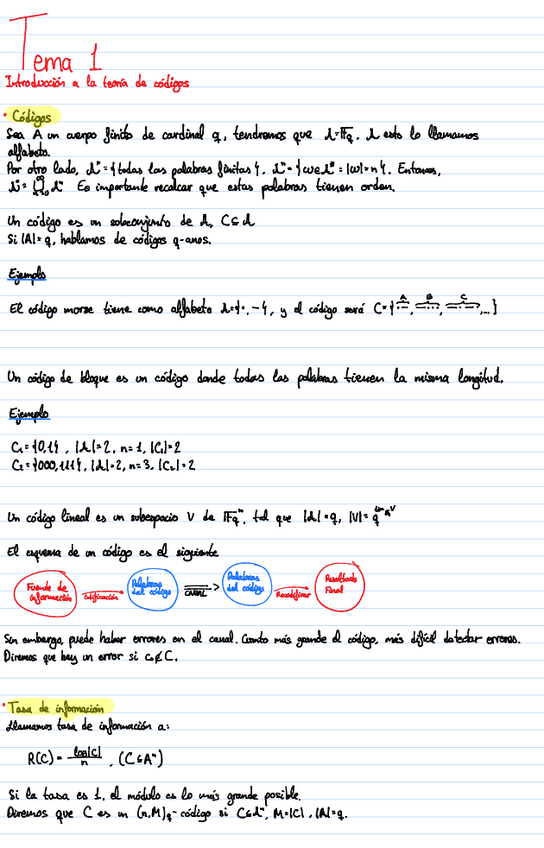 Tema 1
Introducción a la teoría de códigos
• Códigos
Sea A un cuerpo finito de cardinal q, tendremos que A=𝔽q. A esto lo llamamos
alfabeto.
Por otro lado, A* = {todas las palabras finitas}. Aⁿ = {w∈A* : |w|=n}. Entonces,
A* = ⋃ Aⁿ Es importante recalcar que estas palabras tienen orden.
Un código es un subconjunto de A, C⊆A
Si |A|=q, hablamos de códigos q-arios.
Ejemplo
El código morse tiene como alfabeto A={·,−}, y el código será C={A ·−, B −···, C −·−·,...}
Un código de bloque es un código donde todas las palabras tienen la misma longitud.
Ejemplo
C₁={0,1}, |A|=2, n=1, |C₁|=2
C₂={000,111}, |A|=2, n=3, |C₂|=2
Un código lineal es un subespacio V de 𝔽qⁿ, tal que |A|=q, |V|=q^dim V
El esquema de un código es el siguiente
Fuente de información
Codificación
Palabras del código
CANAL
Palabras del código
Recodificar
Resultado Final
Sin embargo, puede haber errores en el canal. Cuanto más grande el código, más difícil detectar errores.
Diremos que hay un error si c₀∉C.
• Tasa de información
Llamamos tasa de información a:
R(C) = log|C| / n , (C⊆Aⁿ)
Si la tasa es 1, el módulo es lo más grande posible.
Diremos que C es un (n,M)q-código si C⊆Aⁿ, M=|C|, |A|=q.